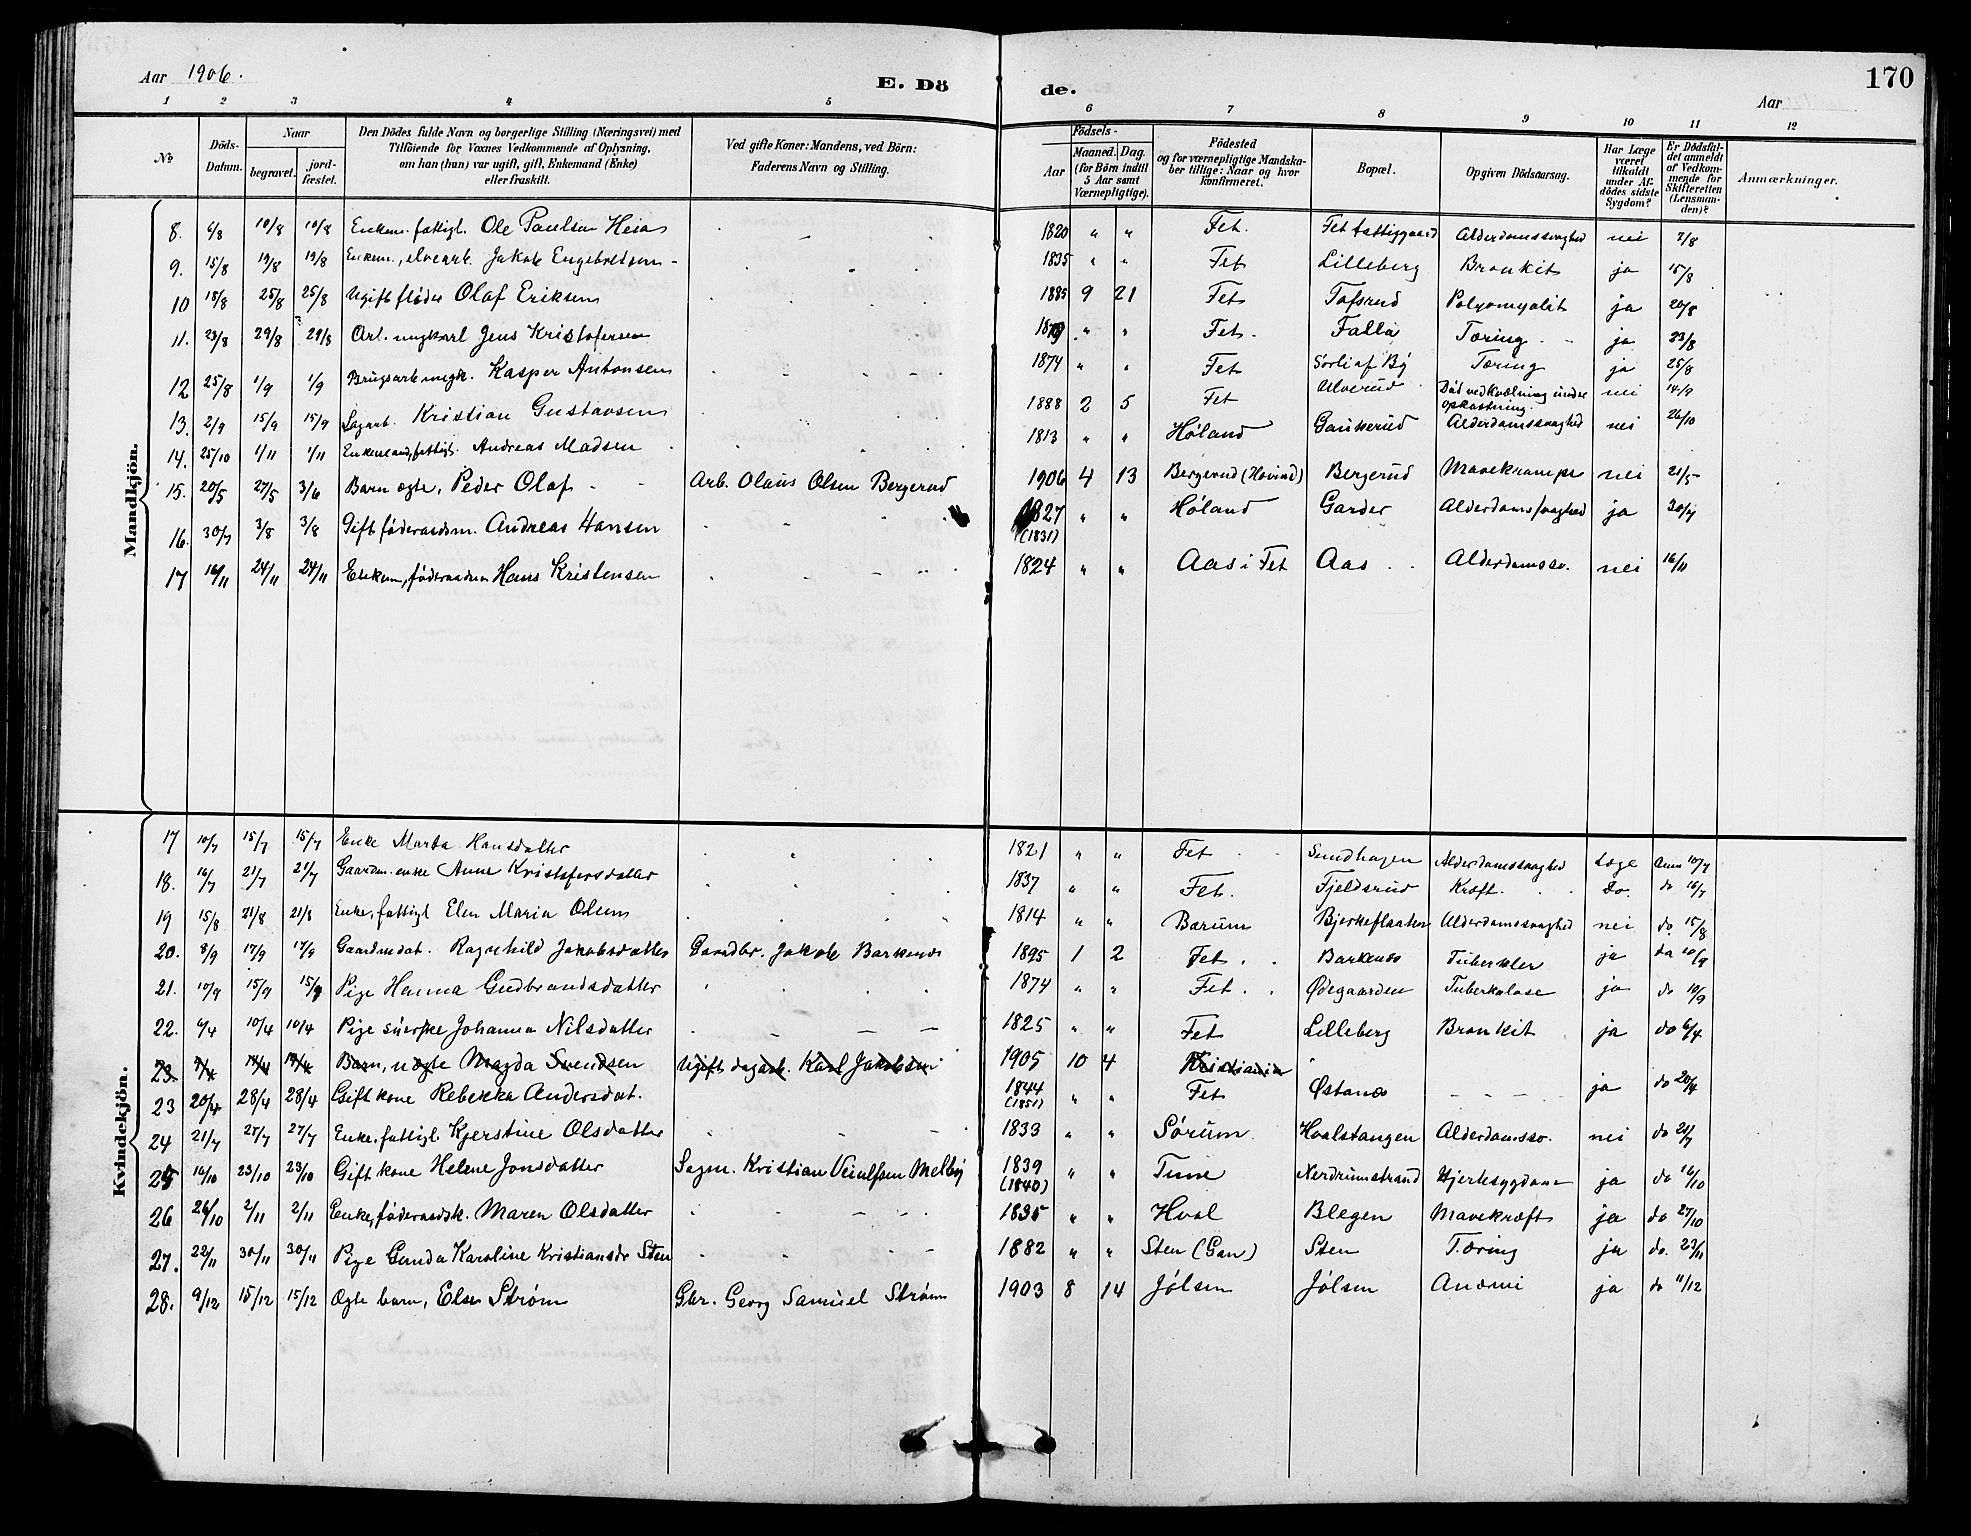 Aar 1906.
E. Dö
de.
170
Aar
1 2 3 4 5 6 7 8 9 10 11 12
No
Döds-Datum.
Naar
begravet.
jord-fæstet.
Den Dödes fulde Navn og borgerlige Stilling (Næringsvei) med
Tilföiende for Voxnes Vedkommende af Oplysning,
om han (hun) var ugift, gift, Enkemand (Enke)
eller fraskilt.
Ved gifte Koner: Mandens, ved Börn:
Faderens Navn og Stilling.
Födsels-
Aar
Maaned. Dag.
(for Börn indtil
5 Aar samt
Værnepligtige).
Födested
og for værnepligtige Mandska-
ber tillige: Naar og hvor
konfirmeret.
Bopæl.
Opgiven Dödsaarsag.
Har Læge
været
tilkaldt
under Af-
dödes sidste
Sygdom?
Er Dödsfal-
det anmeldt
af Vedkom-
mende for
Skifteretten
(Lensman-
den)?
Anmærkninger.
Mandkjön.
8. 6/8 10/8 10/8 Enkem. fattigl. Ole Paulsen Heia 1820 " " Fet. Fet fattiggaard Alderdomssvaghed nei 7/8
9. 15/8 19/8 19/8 Enkem., elvearb. Jakob Engebretsen 1835 " " Fet Lilleberg Bronkit ja 15/8
10 18/8 25/8 25/8 Ugift fløder Olaf Eriksen 1885 9 21 Fet Tofsrud Polyomyalit ja 20/8
11. 23/8 29/8 29/8 Arb. ungkarl Jens Kristofersen " " Fet. Falla Tæring ja 23/8
12 25/8 1/9 1/9 Brugsarb. ungk. Kasper Antonsen 1874 " " Fet Sørli af By Tæring ja 25/8
13. 2/9 15/9 15/9 Sagarb. Kristian Gustavsen 1888 2 5 Fet Alverud Død ved Kvælning under Opkastning. nei 14/9
14. 25/10 1/11 1/11 Enkemand, fattigl. Andreas Madsen 1813 " " Høland Gaukerud Alderdomssvaghed nei 26/10
15. 20/5 27/5 3/6 Barn ægte, Peder Olaf Arb. Olaus Olsen Bergerud 1906 4 13 Bergerud (Hovind) Bergerud Mavekrampe nei 21/5
16. 30/7 3/8 3/8 Gift føderaadsm. Andreas Hansen 1827 (1831) " " Høland Garder Alderdomssvaghed ja 30/7
17 16/11 24/11 24/11 Enkem, føderaadsm Hans Kristensen 1824 " " Aas i Fet Aas Alderdomssv. nei 16/11
Kvindekjön.
17 10/7 15/7 15/7 Enke Marta Hansdatter 1821 " " Fet Sundhagen Alderdomssvaghed Læge Anm 10/7
18. 16/7 21/7 21/7 Gaardm. enke Anne Kristofersdatter 1837 " " Fet. Fjeldsrud Kræft. Do. do 16/7
19 15/8 21/8 21/8 Enke, fattigl Elen Maria Olsen 1814 " " Bærum Bjerkeflaaten Alderdomssvaghed nei do. 15/8
20. 8/9 17/9 17/9 Gaardmdat. Ragnhild Jakobsdatter Gaardbr. Jakob Barkenæs 1895 1 2 Fet. Barkenæs Tuberkler ja do 10/9
21. 10/9 15/9 15/9 Pige Hanna Gudbrandsdatter 1874 " " Fet. Ødegaarden Tuberkulose ja do 10/9
22. 6/4 10/4 10/4 Pige syerske Johanna Nilsdatter 1825 " " Fet Lilleberg Bronkit ja do 6/4
23. 7/4 14/4 14/4 Barn, uægte Magda Svendsen Ugift dagarb. Karl Jakobsen 1905 10 4 Kristiania
23 20/4 28/4 28/4 Gift kone Rebekka Andersdat. 1844 (1851) " " Fet Østanæs ja do 20/4
24 21/7 27/7 27/7 Enke, fattigl. Kjerstine Olsdatter 1833 " " Sørum Hvalstangen Alderdomssv. nei do 21/7
25 16/10 23/10 23/10 Gift kone Helene Jonsdatter Sagm. Kristian Melby 1839 (1840) " " Tune Nerdrumstrand Hjertesygdom ja do 16/10
26 26/10 2/11 2/11 Enke, føderaadsk. Maren Olsdatter 1835 " " Hval Blegen Mavekræft ja do 27/10
27. 22/11 30/11 30/11 Pige Gunda Karoline Kristiansdr Sten 1882 " " Sten (Gan) Sten Tæring ja do. 23/11
28. 9/12 15/12 15/12 Ægte barn, Else Strøm Gbr. Georg Samuel Strøm 1903 8 14 Jølsen Jølsen Anæmi ja do 11/12